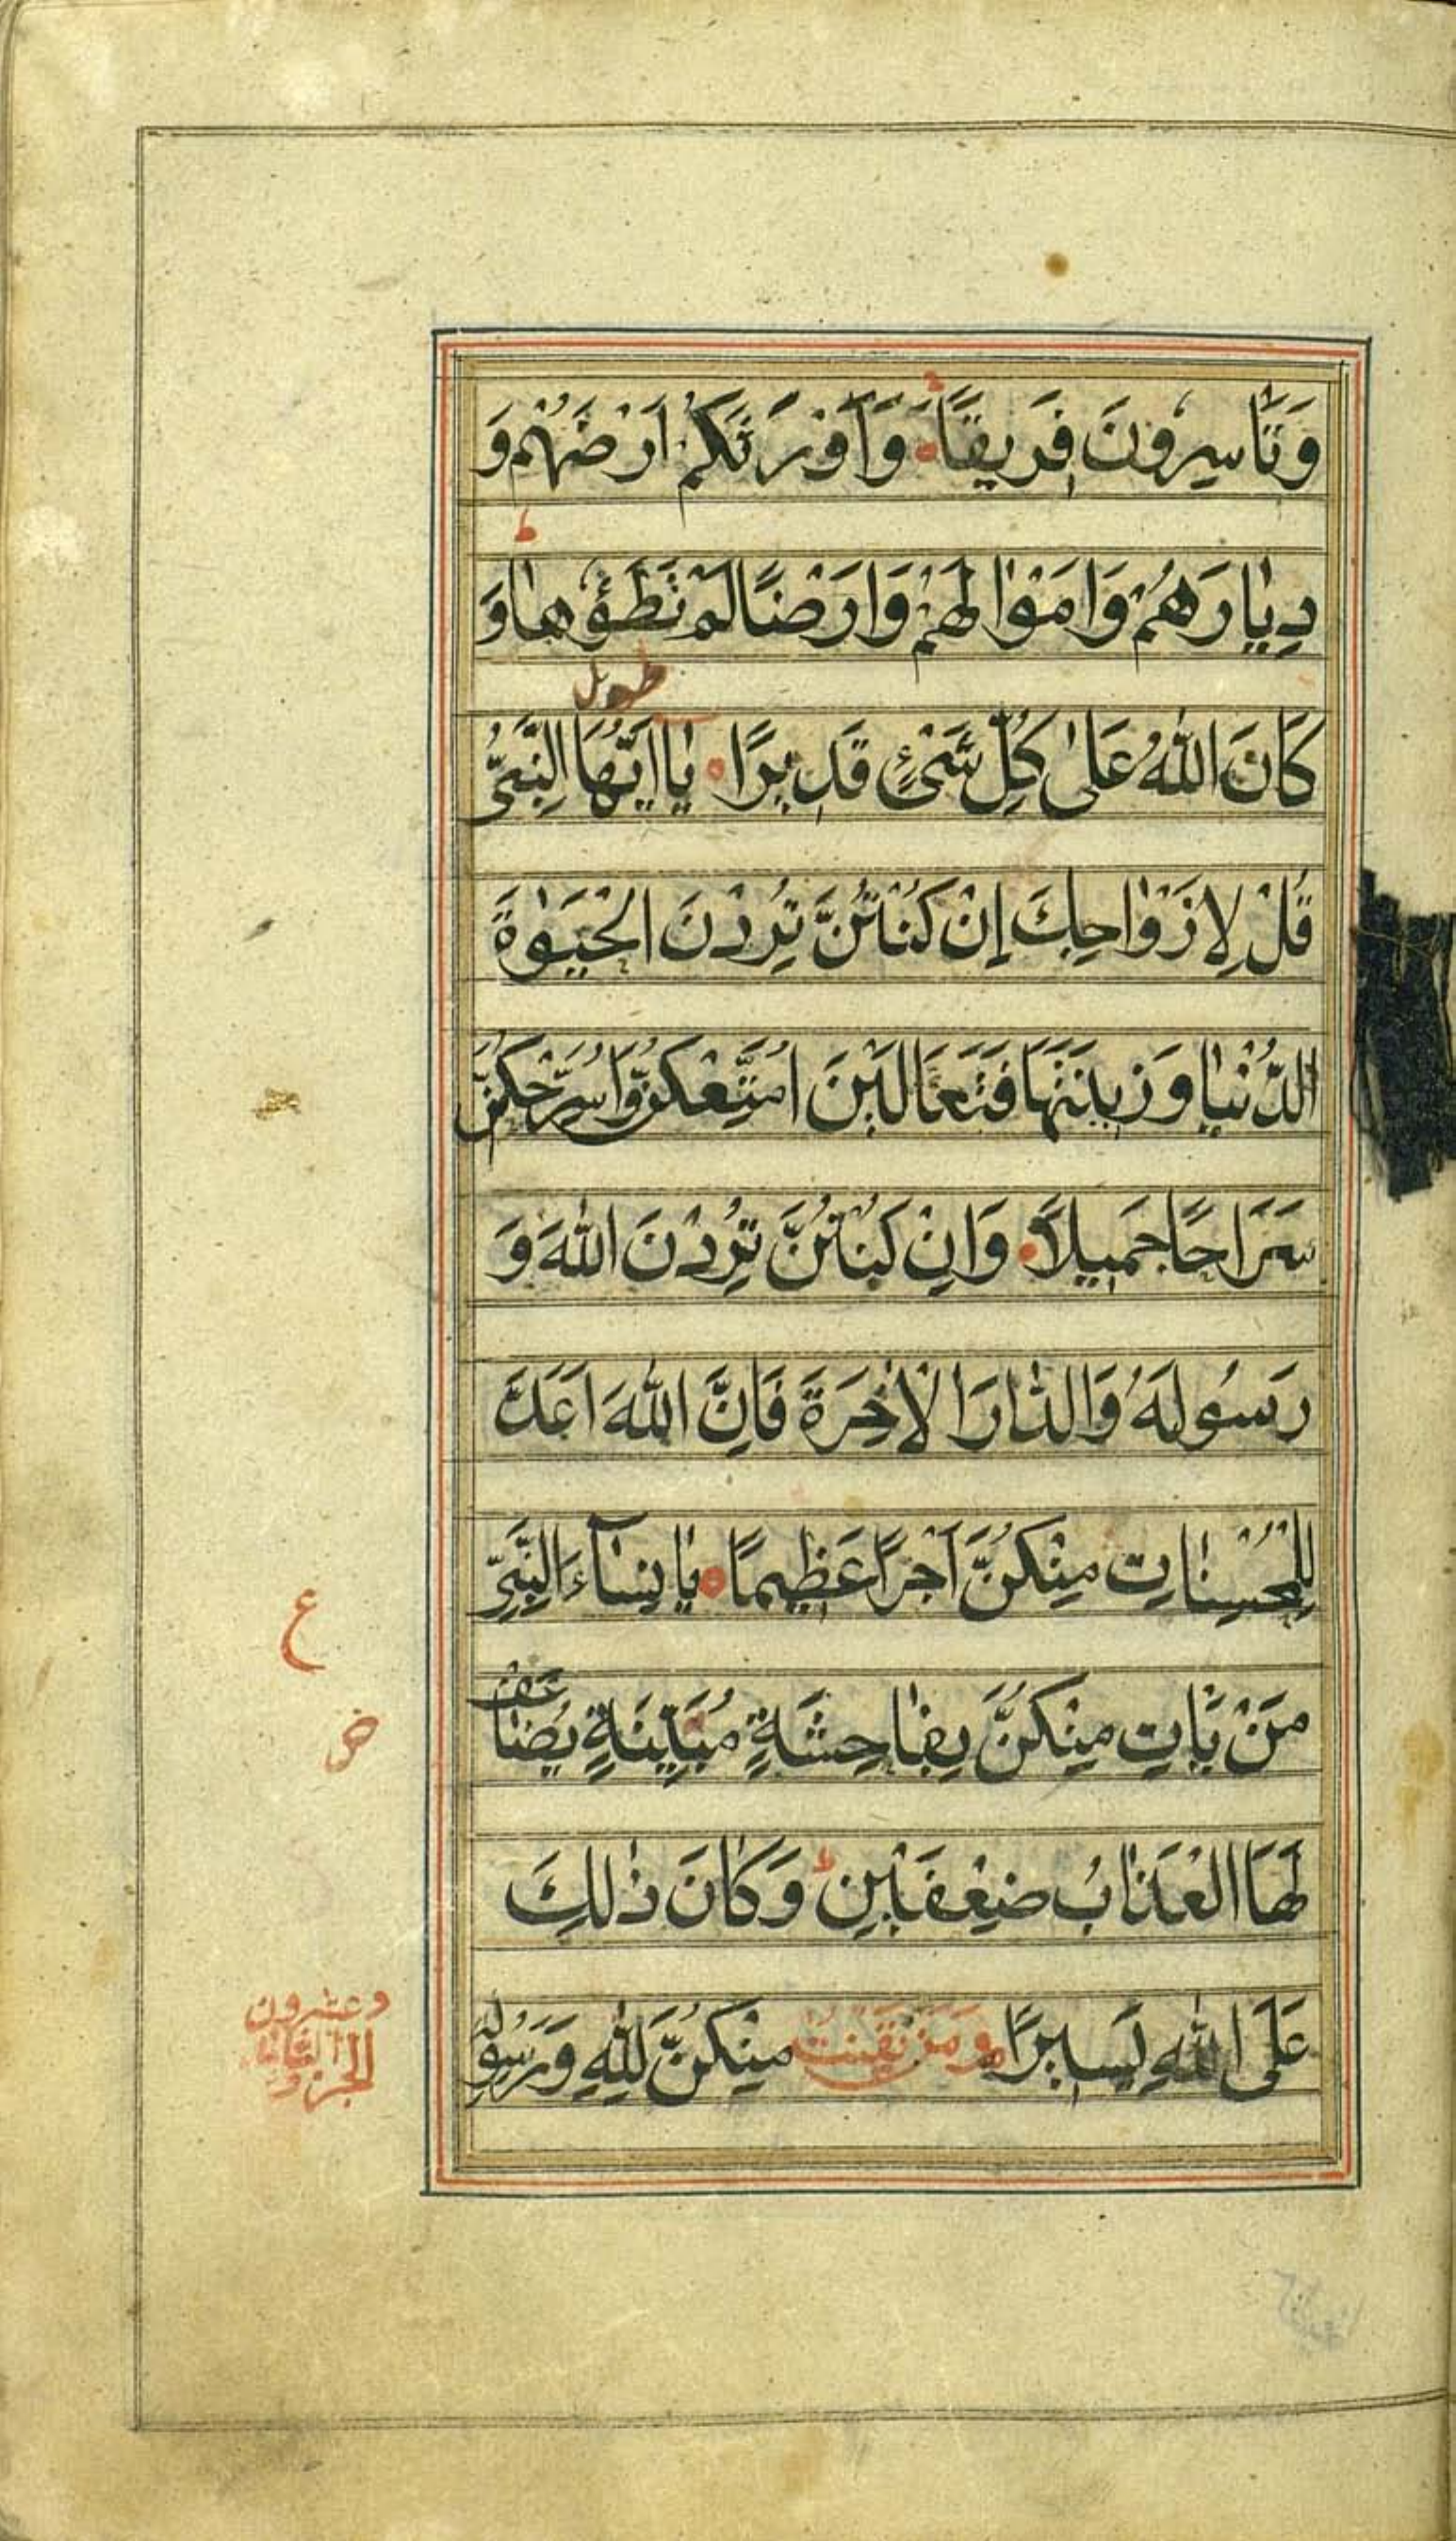 وَتَأْسِرُونَ فَرِيقًا وَاَوْرَثَكُمْ اَرْضَهُمْ وَ
ط
دِيٰارَهُمْ وَاَمْوٰالَهُمْ وَاَرْضًا لَمْ تَطَؤُهٰا وَ
كَانَ اللّٰهُ عَلىٰ كُلِّ شَىْءٍ قَدِيرًا يٰا اَيُّهَا النَّبِىُّ
قُلْ لِاَزْوٰاجِكَ اِنْ كُنْتُنَّ تُرِدْنَ الْحَيٰوةَ
الدُّنْيٰا وَزِينَتَهَا فَتَعَالَيْنَ اُمَتِّعْكُنَّ وَاُسَرِّحْكُنَّ
سَرَاحًا جَمِيلًا وَاِنْ كُنْتُنَّ تُرِدْنَ اللّٰهَ وَ
رَسُولَهُ وَالدّٰارَ الْاٰخِرَةَ فَاِنَّ اللّٰهَ اَعَدَّ
لِلْمُحْسِنٰاتِ مِنْكُنَّ اَجْرًا عَظِيمًا يٰا نِسٰآءَ النَّبِىِّ
ع
مَنْ يَأْتِ مِنْكُنَّ بِفٰاحِشَةٍ مُبَيِّنَةٍ يُضٰاعَفْ
لَهَا الْعَذٰابُ ضِعْفَيْنِ ط وَكَانَ ذٰلِكَ
عَلَى اللّٰهِ يَسِيرًا وَمَنْ يَقْنُتْ مِنْكُنَّ لِلّٰهِ وَرَسُولِهِ
الجزو الثانى
وعشرون